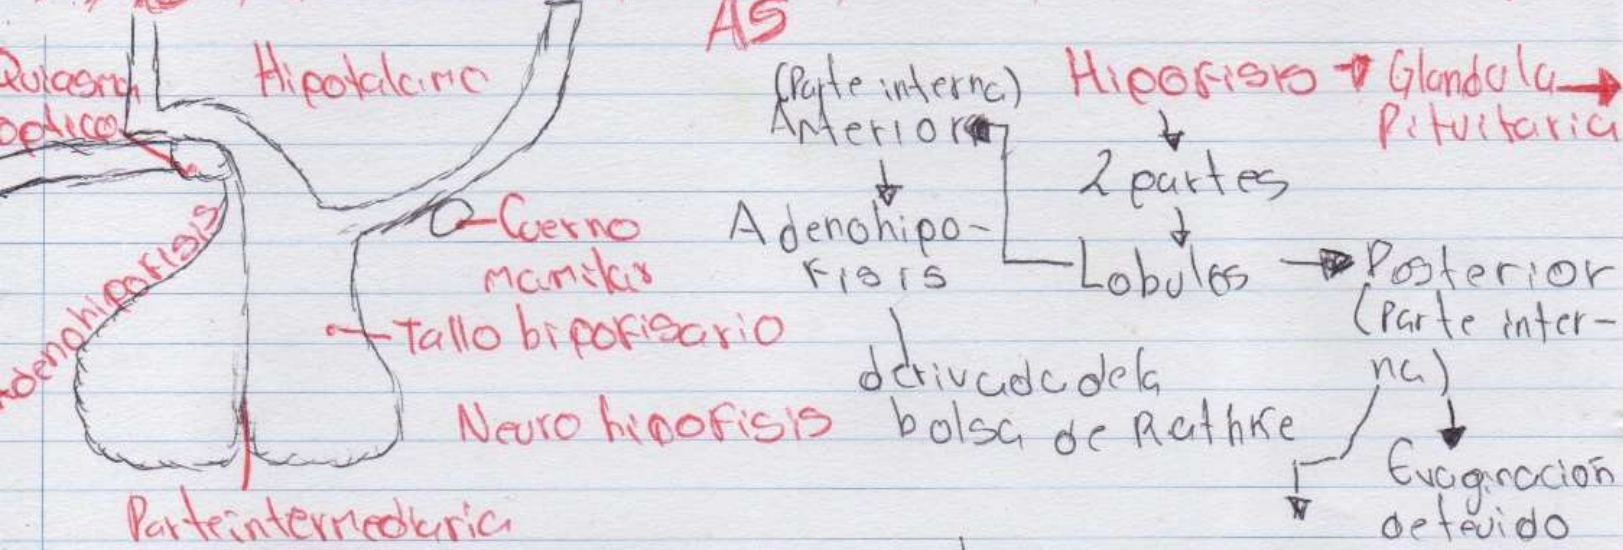 AS
Quiasma
optico
Hipotalamo
Adenohipofisis
Cuerno
mamilar
Tallo hipofisario
Neuro hipofisis
Parteintermediaria
(Parte interna)
Anterior
Adenohipo-
fisis
derivada dela
bolsa de Rathke
Hipofisis → Glandula →
Pituitaria
2 partes
Lobulos → Posterior
(Parte inter-
na)
Evaginacion
de tejido